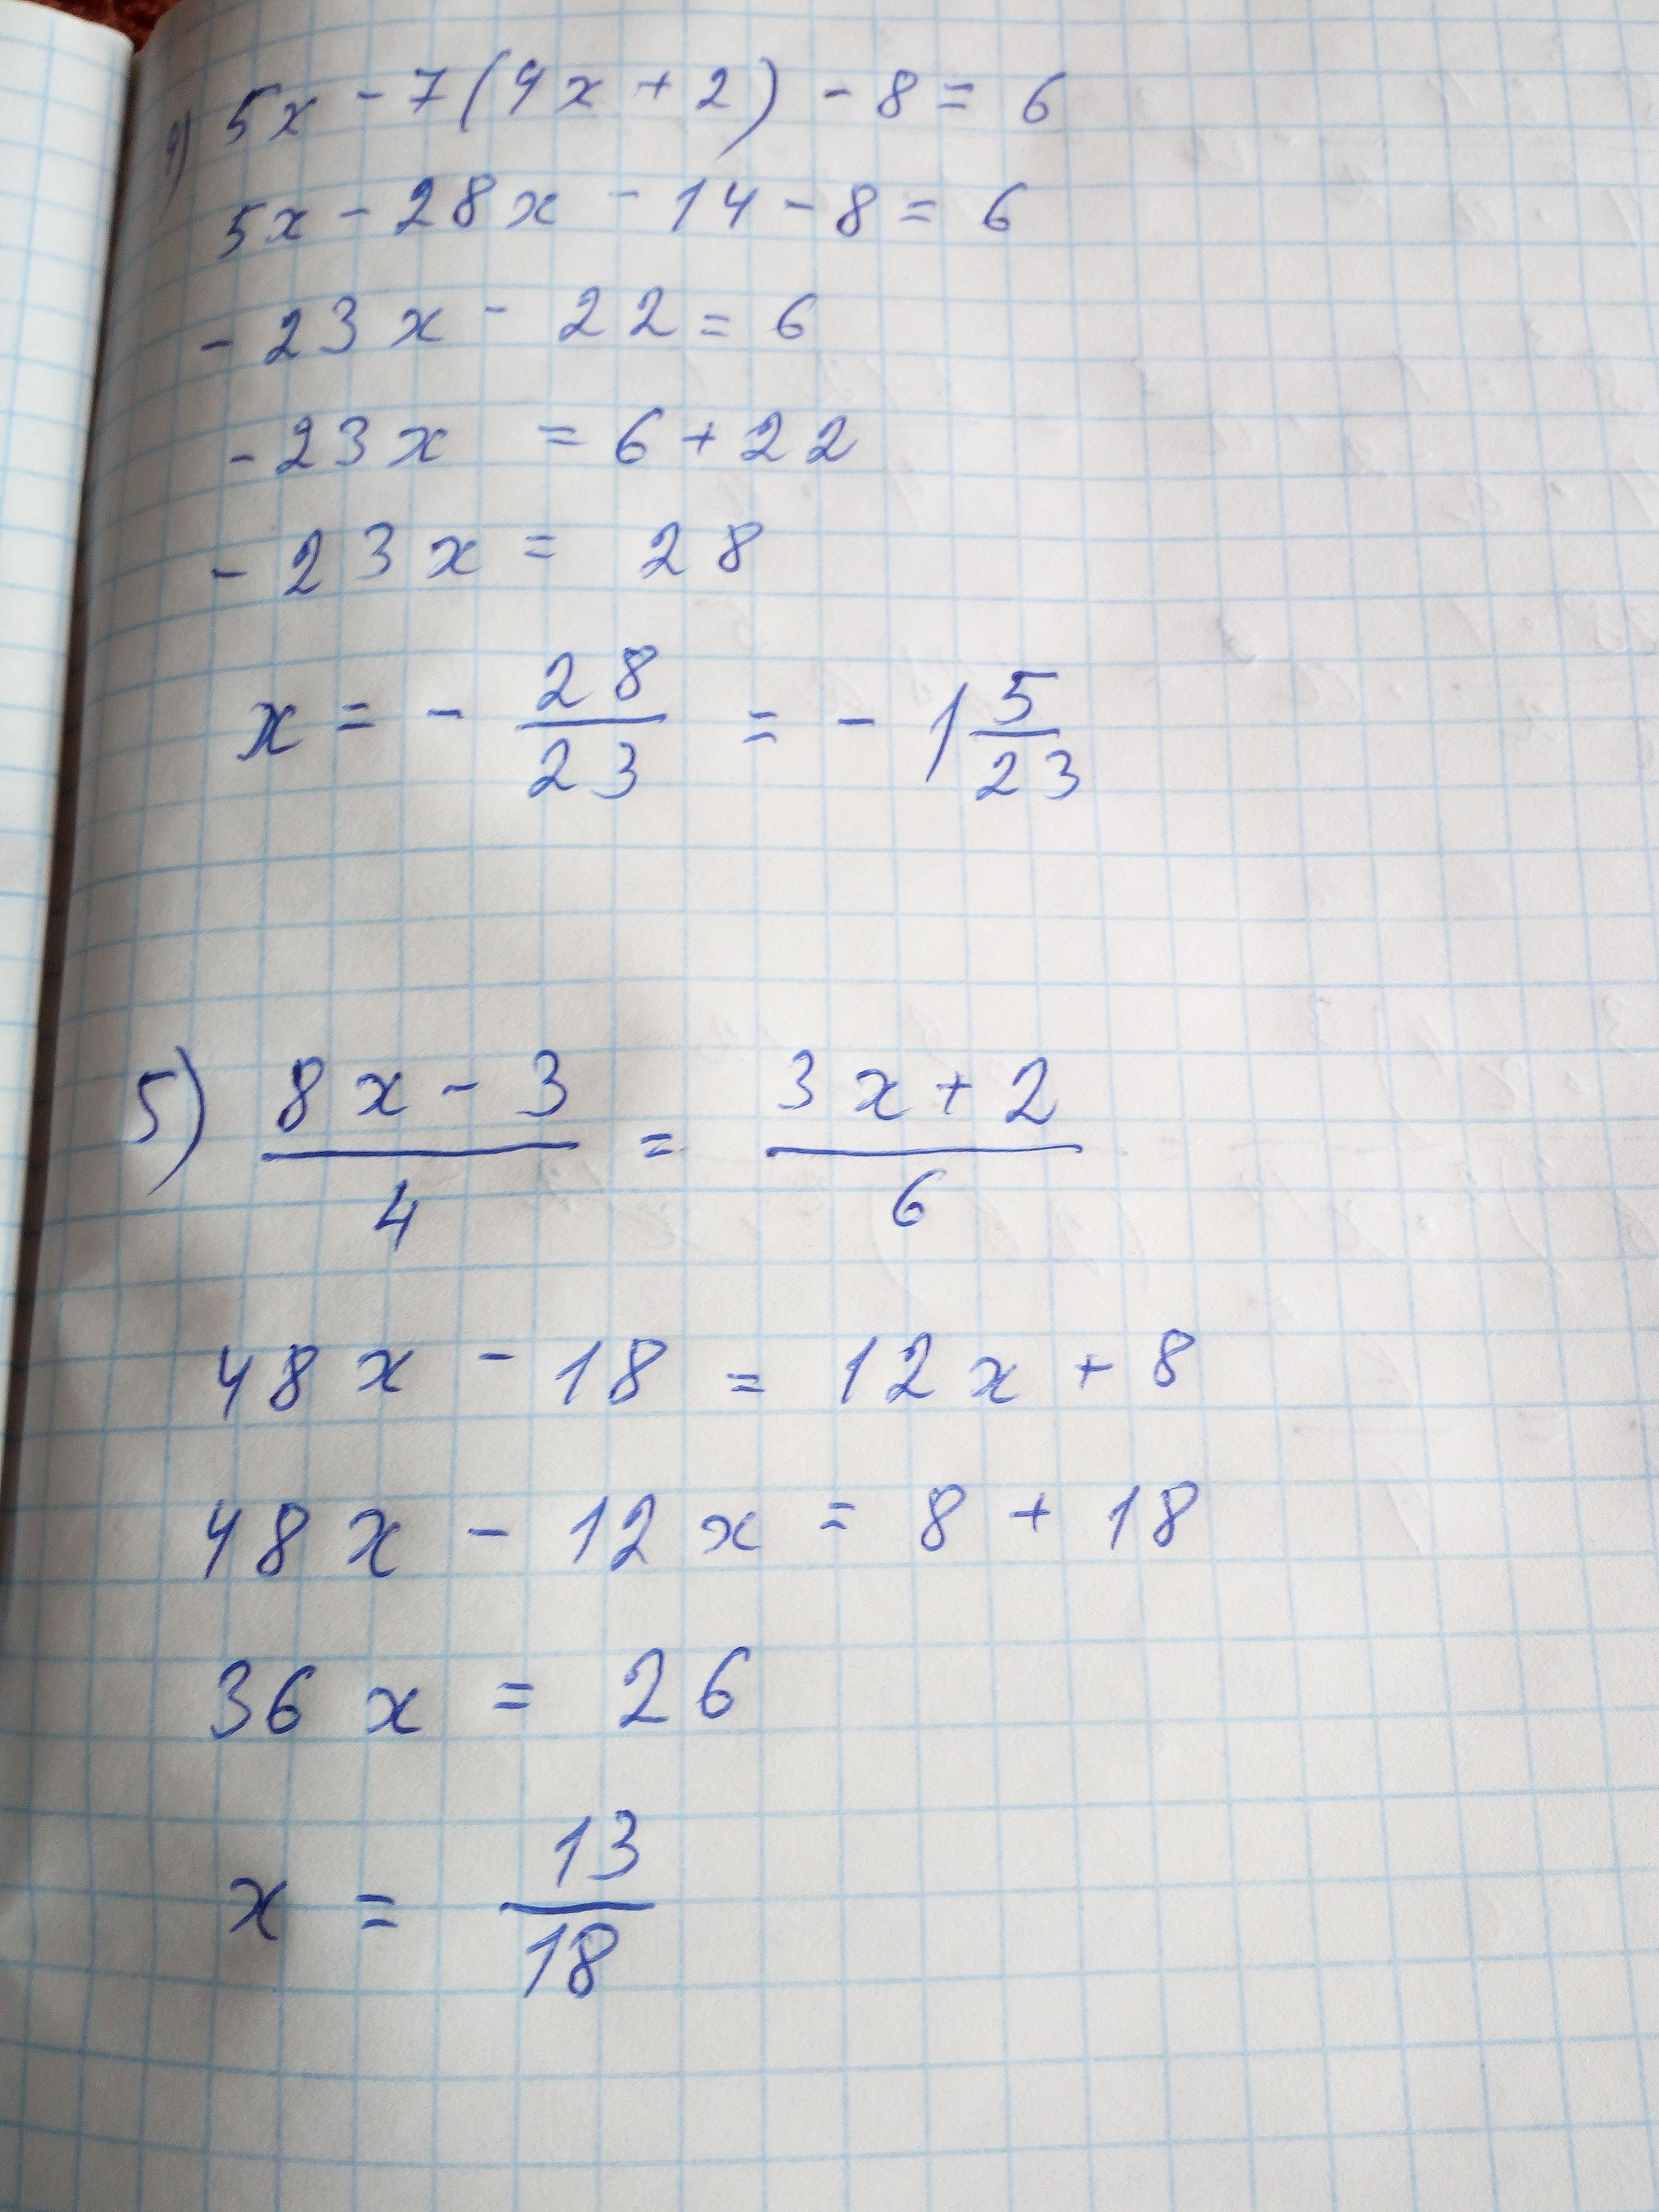 4) 5x - 7(4x + 2) - 8 = 6
5x - 28x - 14 - 8 = 6
- 23x - 22 = 6
- 23x = 6 + 22
- 23x = 28
x = - 28/23 = - 1 5/23
5) (8x - 3)/4 = (3x + 2)/6
48x - 18 = 12x + 8
48x - 12x = 8 + 18
36x = 26
x = 13/18